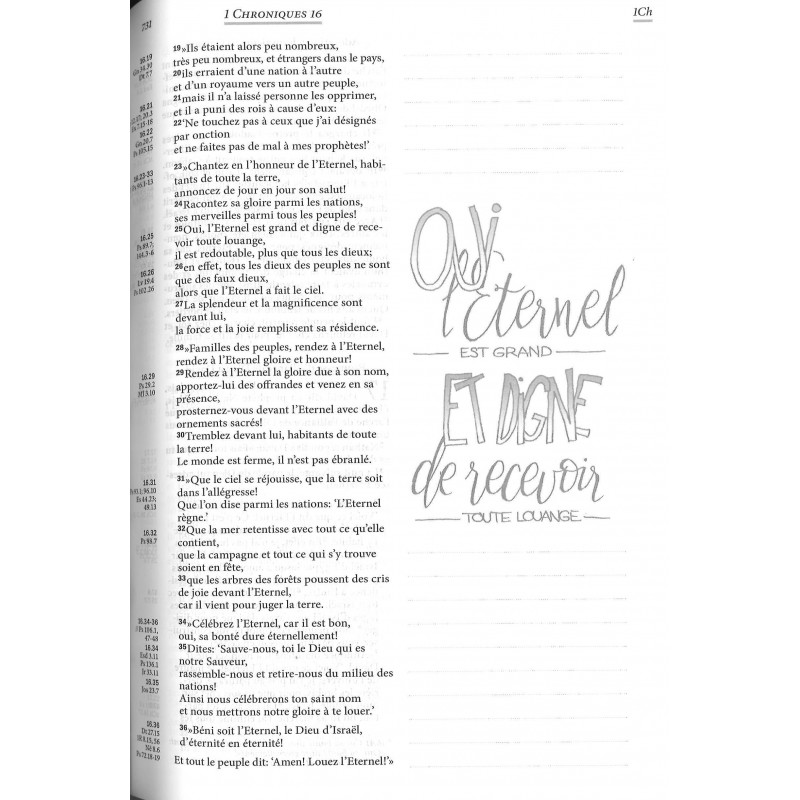 1 Chroniques 16
1Ch
16.19
19»Ils étaient alors peu nombreux,
très peu nombreux, et étrangers dans le pays,
20ils erraient d'une nation à l'autre
et d'un royaume vers un autre peuple,
16.21
21mais il n'a laissé personne les opprimer,
et il a puni des rois à cause d'eux:
16.22
Gn 20.7
Ps 105.15
22'Ne touchez pas à ceux que j'ai désignés
par onction
et ne faites pas de mal à mes prophètes!'
16.23-33
23»Chantez en l'honneur de l'Eternel, habi-
tants de toute la terre,
annoncez de jour en jour son salut!
24Racontez sa gloire parmi les nations,
ses merveilles parmi tous les peuples!
16.25
Ps 89.7;
144.3-6
25Oui, l'Eternel est grand et digne de rece-
voir toute louange,
il est redoutable, plus que tous les dieux;
16.26
Lv 19.4
Ps 102.26
26en effet, tous les dieux des peuples ne sont
que des faux dieux,
alors que l'Eternel a fait le ciel.
27La splendeur et la magnificence sont
devant lui,
la force et la joie remplissent sa résidence.
28»Familles des peuples, rendez à l'Eternel,
rendez à l'Eternel gloire et honneur!
16.29
Ps 29.2
Ml 3.10
29Rendez à l'Eternel la gloire due à son nom,
apportez-lui des offrandes et venez en sa
présence,
prosternez-vous devant l'Eternel avec des
ornements sacrés!
30Tremblez devant lui, habitants de toute
la terre!
Le monde est ferme, il n'est pas ébranlé.
16.31
Ps 93.1; 96.10
Es 44.23;
49.13
31»Que le ciel se réjouisse, que la terre soit
dans l'allégresse!
Que l'on dise parmi les nations: 'L'Eternel
règne.'
16.32
Ps 98.7
32Que la mer retentisse avec tout ce qu'elle
contient,
que la campagne et tout ce qui s'y trouve
soient en fête,
33que les arbres des forêts poussent des cris
de joie devant l'Eternel,
car il vient pour juger la terre.
16.34-36
Ps 106.1,
47-48
16.34
Esd 3.11
Ps 136.1
Jr 33.11
16.35
Jos 23.7
34»Célébrez l'Eternel, car il est bon,
oui, sa bonté dure éternellement!
35Dites: 'Sauve-nous, toi le Dieu qui es
notre Sauveur,
rassemble-nous et retire-nous du milieu des
nations!
Ainsi nous célébrerons ton saint nom
et nous mettrons notre gloire à te louer.'
16.36
Dt 27.15
1R 8.15, 56
Né 8.6
Ps 72.18-19
36»Béni soit l'Eternel, le Dieu d'Israël,
d'éternité en éternité!
Et tout le peuple dit: 'Amen! Louez l'Eternel!'»
Oui,
l'Eternel
EST GRAND
ET DIGNE
de recevoir
TOUTE LOUANGE